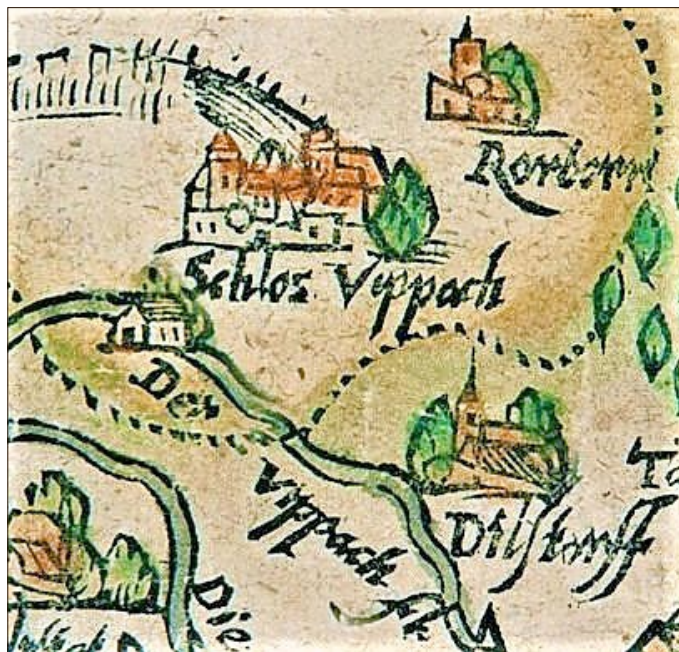 Rorborn
Schlos Vippach
Der
Vippach fl
Dilstorff
Die